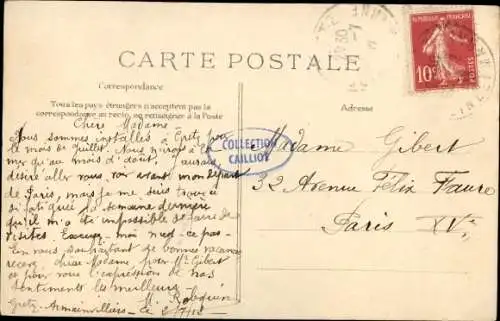 CARTE POSTALE
Correspondance
Tous les pays étrangers n'acceptent pas la
correspondance au recto, se renseigner à la Poste
Adresse
RÉPUBLIQUE FRANÇAISE
10c
POSTES
COLLECTION
CAILLIOT
Chère Madame
Nous sommes installés à Gretz pour
le mois de Juillet. Nous n'irons à la
mer qu'au mois d'août, aurais
désiré aller vous voir avant mon départ
de Paris, mais je me suis trouvée
si fatiguée la semaine dernière
qu'il m'a été impossible de faire de
visites. Excusez-moi n'est-ce pas-
En vous souhaitant de bonnes vacances
recevez chère Madame, pour Mr Gibert
et pour vous l'expression de nos
sentiments les meilleurs
Gretz-Armainvilliers
Madame Gibert
32 Avenue Félix Faure
Paris XVe